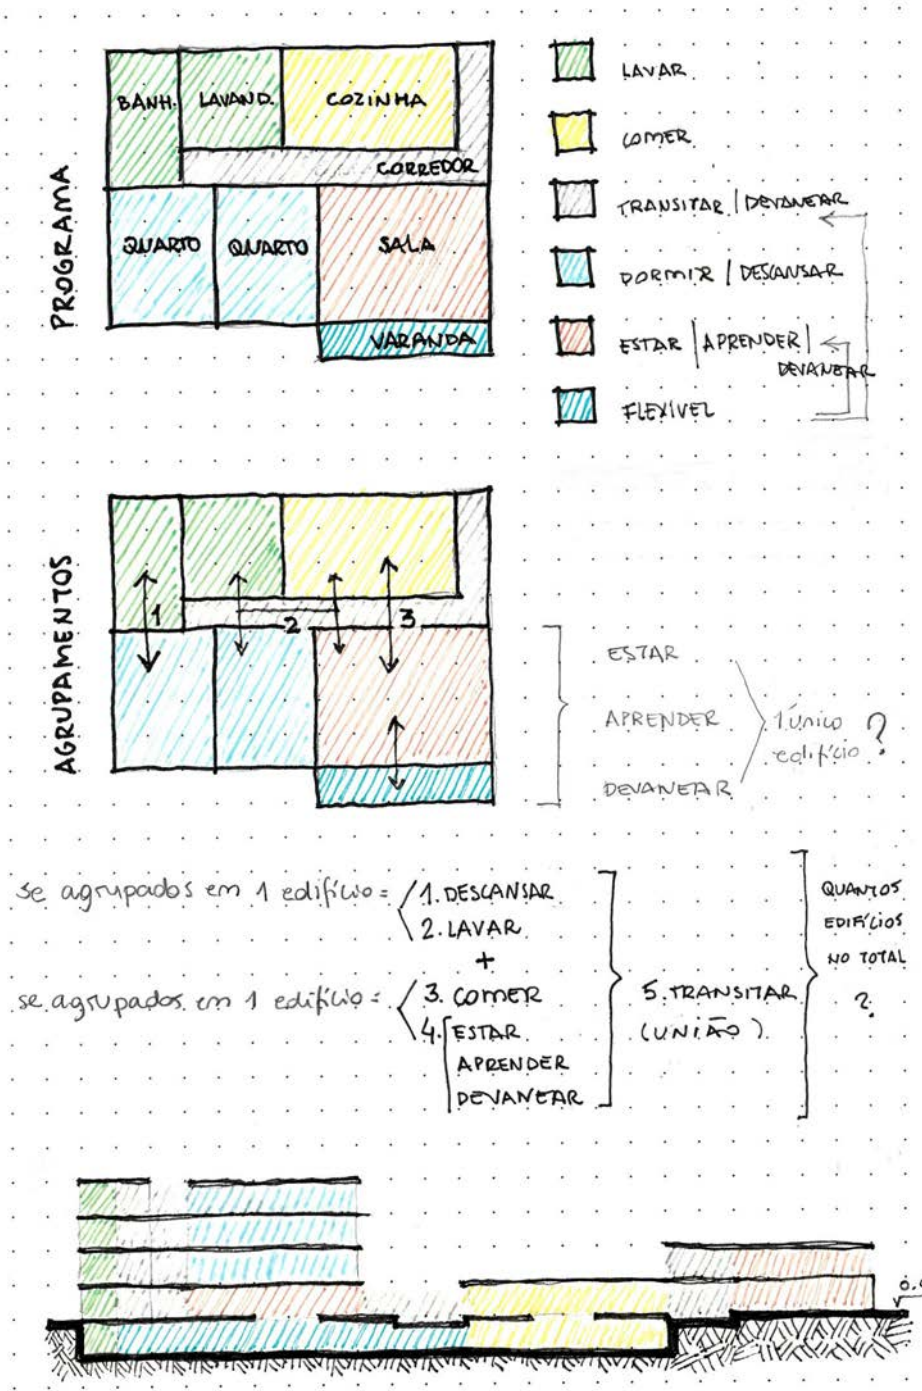 PROGRAMA
BANH.
LAVAND.
COZINHA
CORREDOR
QUARTO
QUARTO
SALA
VARANDA
LAVAR
COMER
TRANSITAR | DEVANEAR
DORMIR / DESCANSAR
ESTAR | APRENDER |
DEVANEAR
FLEXÍVEL
AGRUPAMENTOS
1
2
3
ESTAR
APRENDER
DEVANEAR
1 único
edifício ?
se agrupados em 1 edifício =
1. DESCANSAR
2. LAVAR
+
se agrupados em 1 edifício =
3. COMER
4. ESTAR
APRENDER
DEVANEAR
5. TRANSITAR
(UNIÃO)
QUANTOS
EDIFÍCIOS
NO TOTAL
?